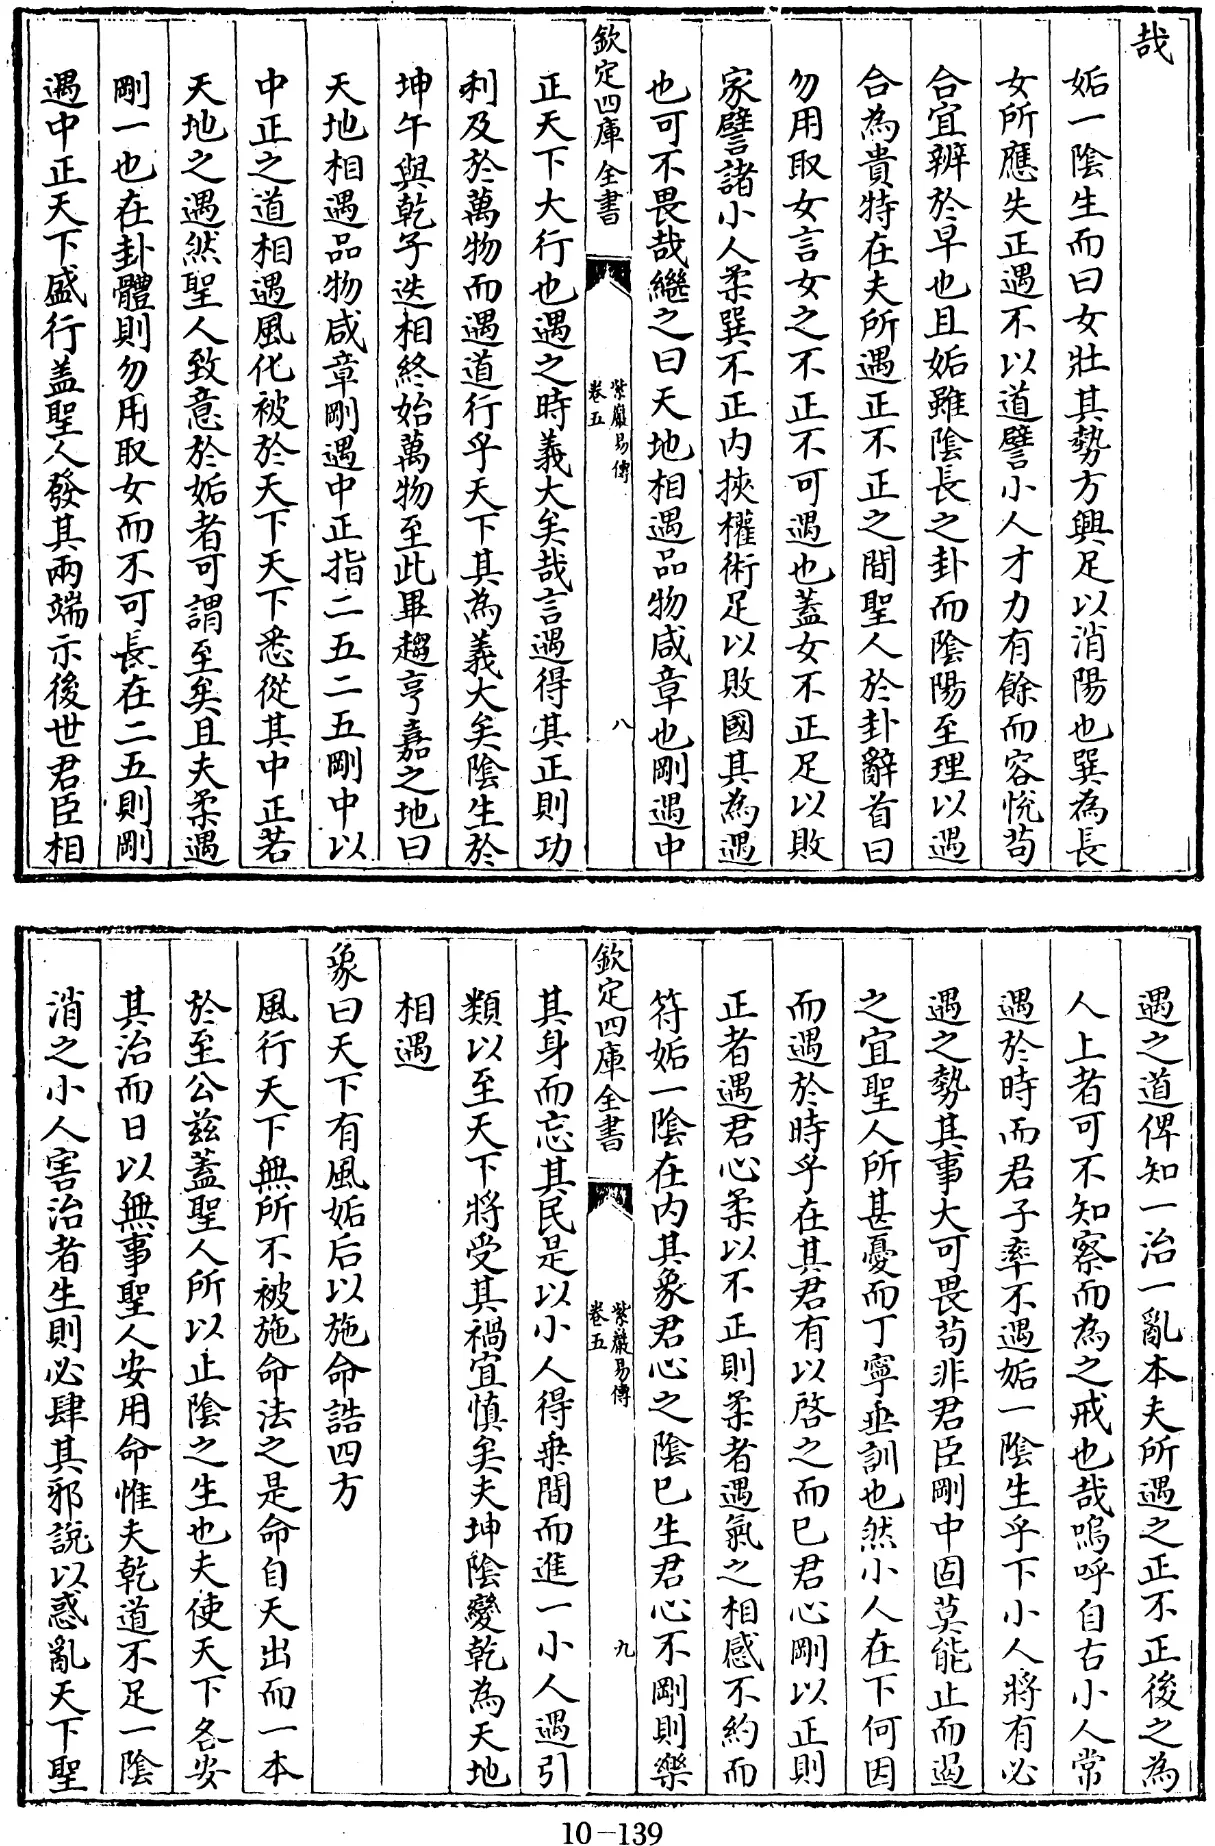 哉
姤一陰生而曰女壯其勢方興足以消陽也巽為長
女所應失正遇不以道譬小人才力有餘而容悅苟
合宜辨於早也且姤雖陰長之卦而陰陽至理以遇
合為貴特在夫所遇正不正之間聖人於卦辭首曰
勿用取女言女之不正不可遇也蓋女不正足以敗
家譬諸小人柔巽不正内挾權術足以敗國其為遇
也可不畏哉繼之曰天地相遇品物咸章也剛遇中
欽定四庫全書
紫巖易傳
卷五
八
正天下大行也遇之時義大矣哉言遇得其正則功
利及於萬物而遇道行乎天下其為義大矣陰生於
坤午與乾子迭相終始萬物至此畢趨亨嘉之地曰
天地相遇品物咸章剛遇中正指二五二五剛中以
中正之道相遇風化被於天下天下悉從其中正若
天地之遇然聖人致意於姤者可謂至矣且夫柔遇
剛一也在卦體則勿用取女而不可長在二五則剛
遇中正天下盛行盖聖人發其兩端示後世君臣相
遇之道俾知一治一亂本夫所遇之正不正後之為
人上者可不知察而為之戒也哉嗚呼自古小人常
遇於時而君子率不遇姤一陰生乎下小人將有必
遇之勢其事大可畏苟非君臣剛中固莫能止而遏
之宜聖人所甚憂而丁寧垂訓也然小人在下何因
而遇於時乎在其君有以啓之而已君心剛以正則
正者遇君心柔以不正則柔者遇氣之相感不約而
符姤一陰在内其象君心之陰已生君心不剛則樂
欽定四庫全書
紫巖易傳
卷五
九
其身而忘其民是以小人得乘間而進一小人遇引
類以至天下將受其禍宜慎矣夫坤陰變乾為天地
相遇
象曰天下有風姤后以施命誥四方
風行天下無所不被施命法之是命自天出而一本
於至公兹蓋聖人所以止陰之生也夫使天下各安
其治而日以無事聖人安用命惟夫乾道不足一陰
消之小人害治者生則必肆其邪說以惑亂天下聖
10-139